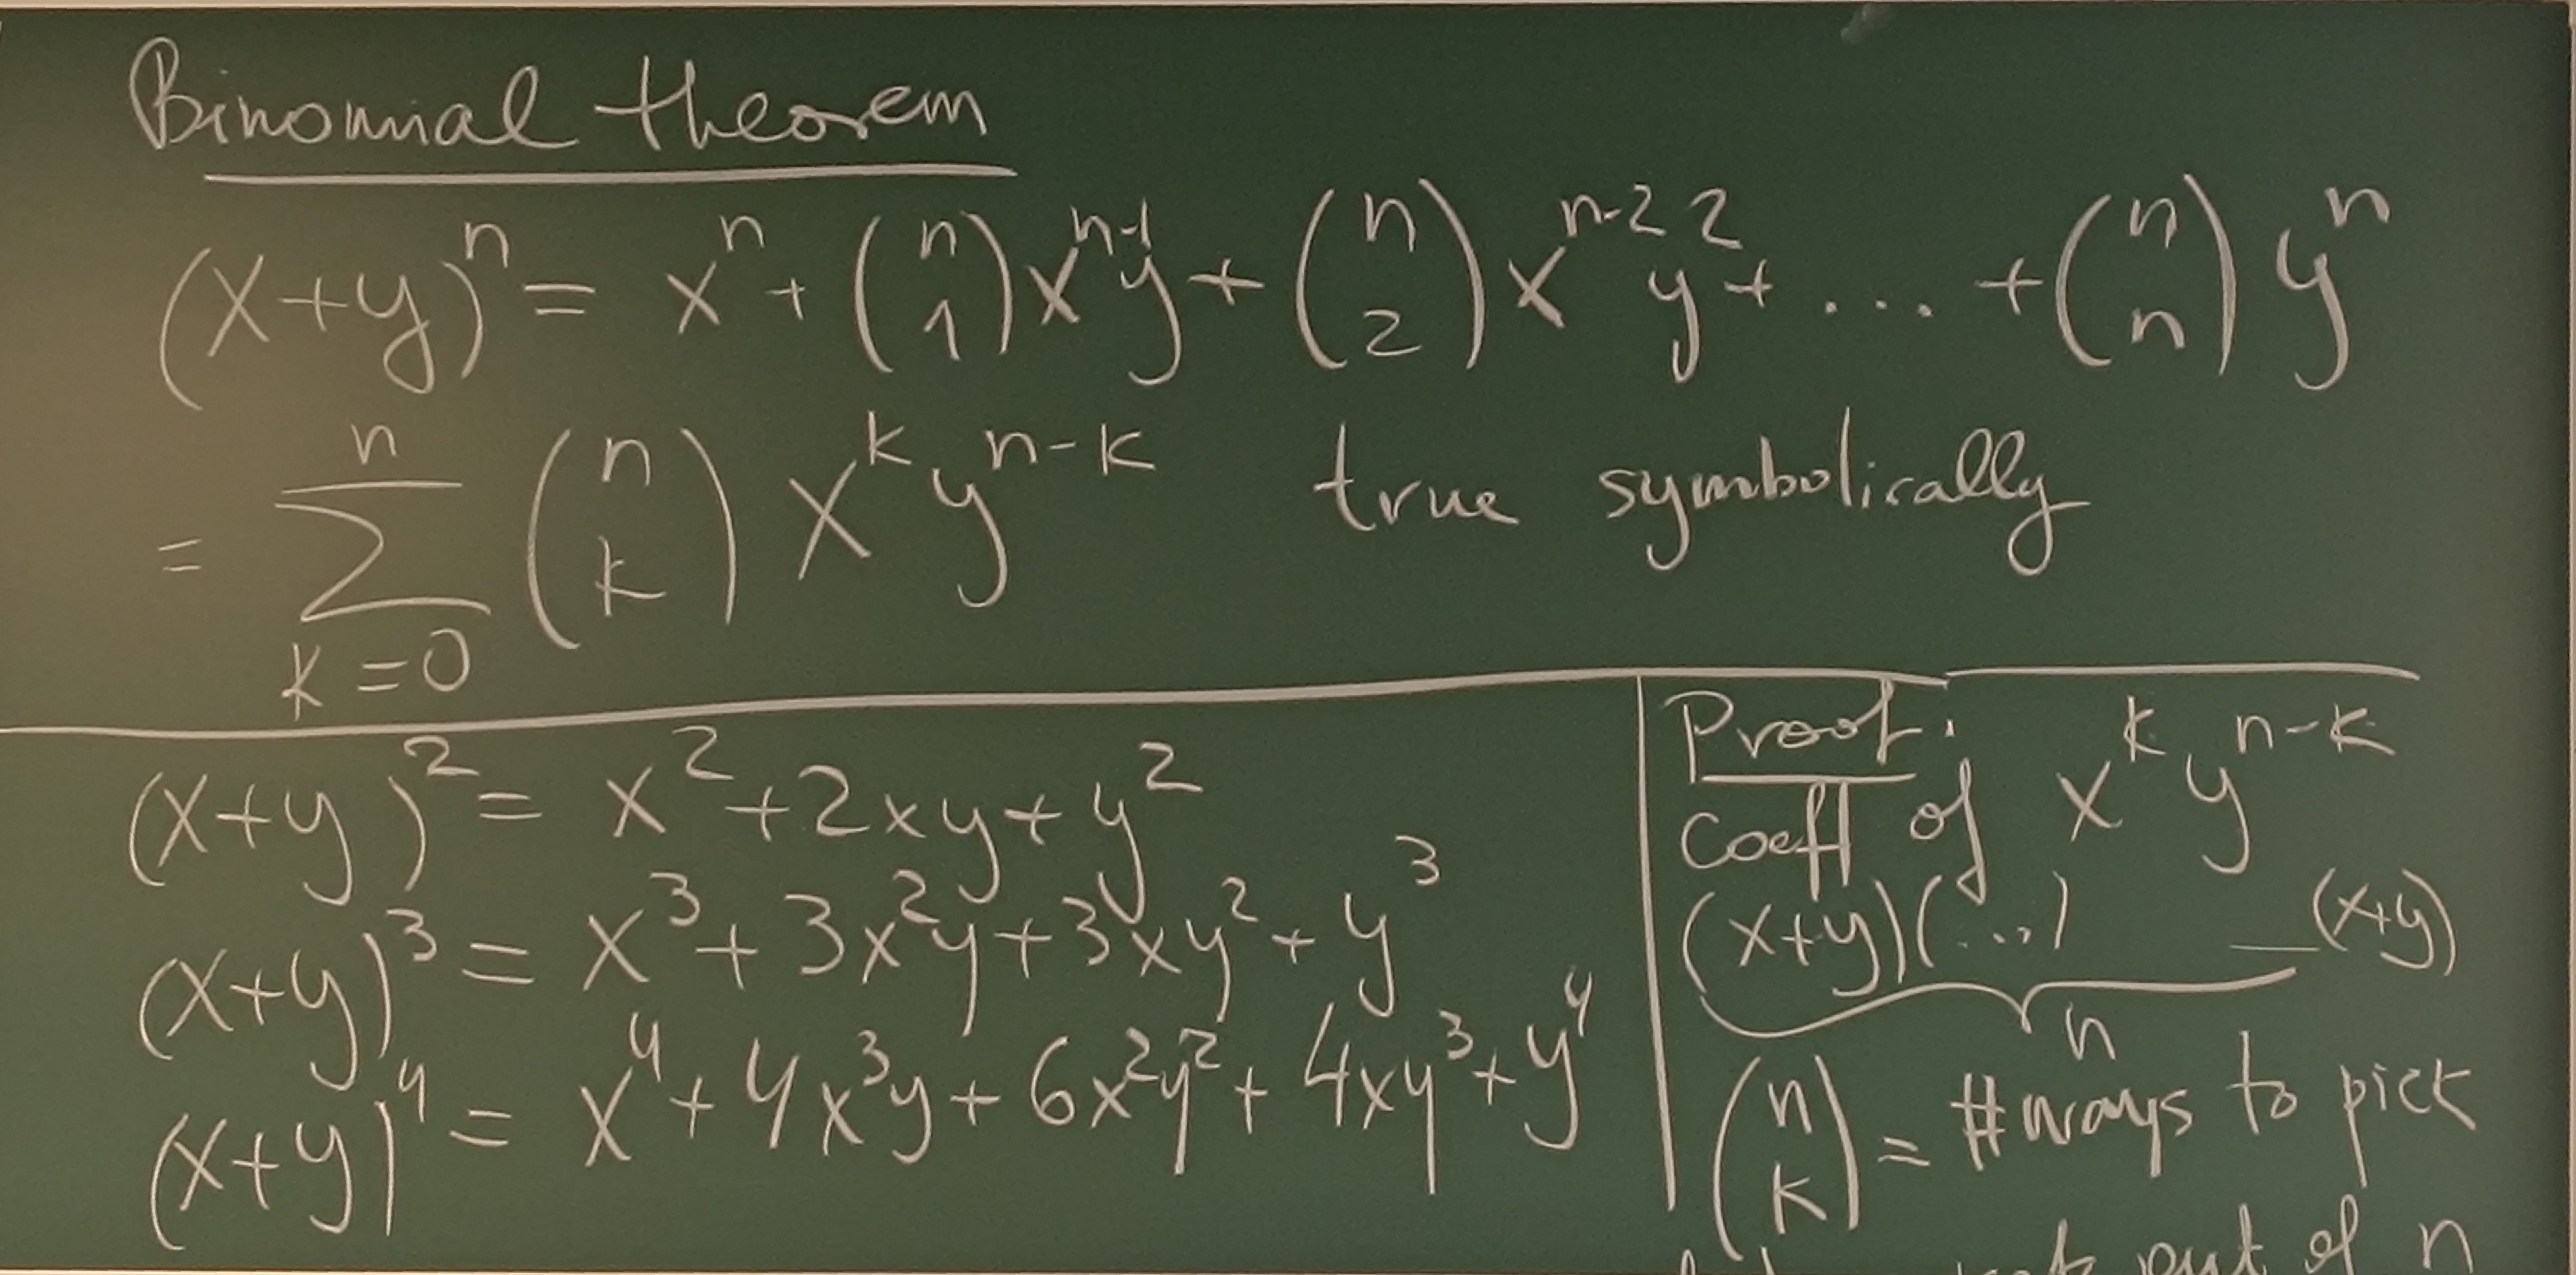 Binomial theorem
(x+y)^n = x^n + (n 1) x^{n-1} y + (n 2) x^{n-2} y^2 + ... + (n n) y^n
= ∑_{k=0}^{n} (n k) x^k y^{n-k} true symbolically
(x+y)^2 = x^2 + 2xy + y^2
(x+y)^3 = x^3 + 3x^2y + 3xy^2 + y^3
(x+y)^4 = x^4 + 4x^3y + 6x^2y^2 + 4xy^3 + y^4
Proof:
Coeff of x^k y^{n-k}
(x+y)(...) _(x+y)
n
(n k) = #ways to pick
out of n